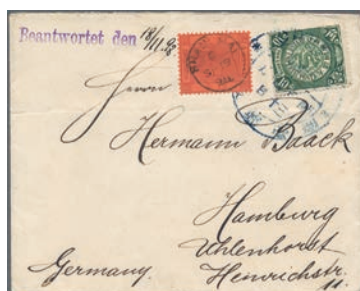 Beantwortet den 18/11.98
Herrn
Hermann Baack
Hamburg
Uhlenhorst
Germany. Heinrichstr.
11.